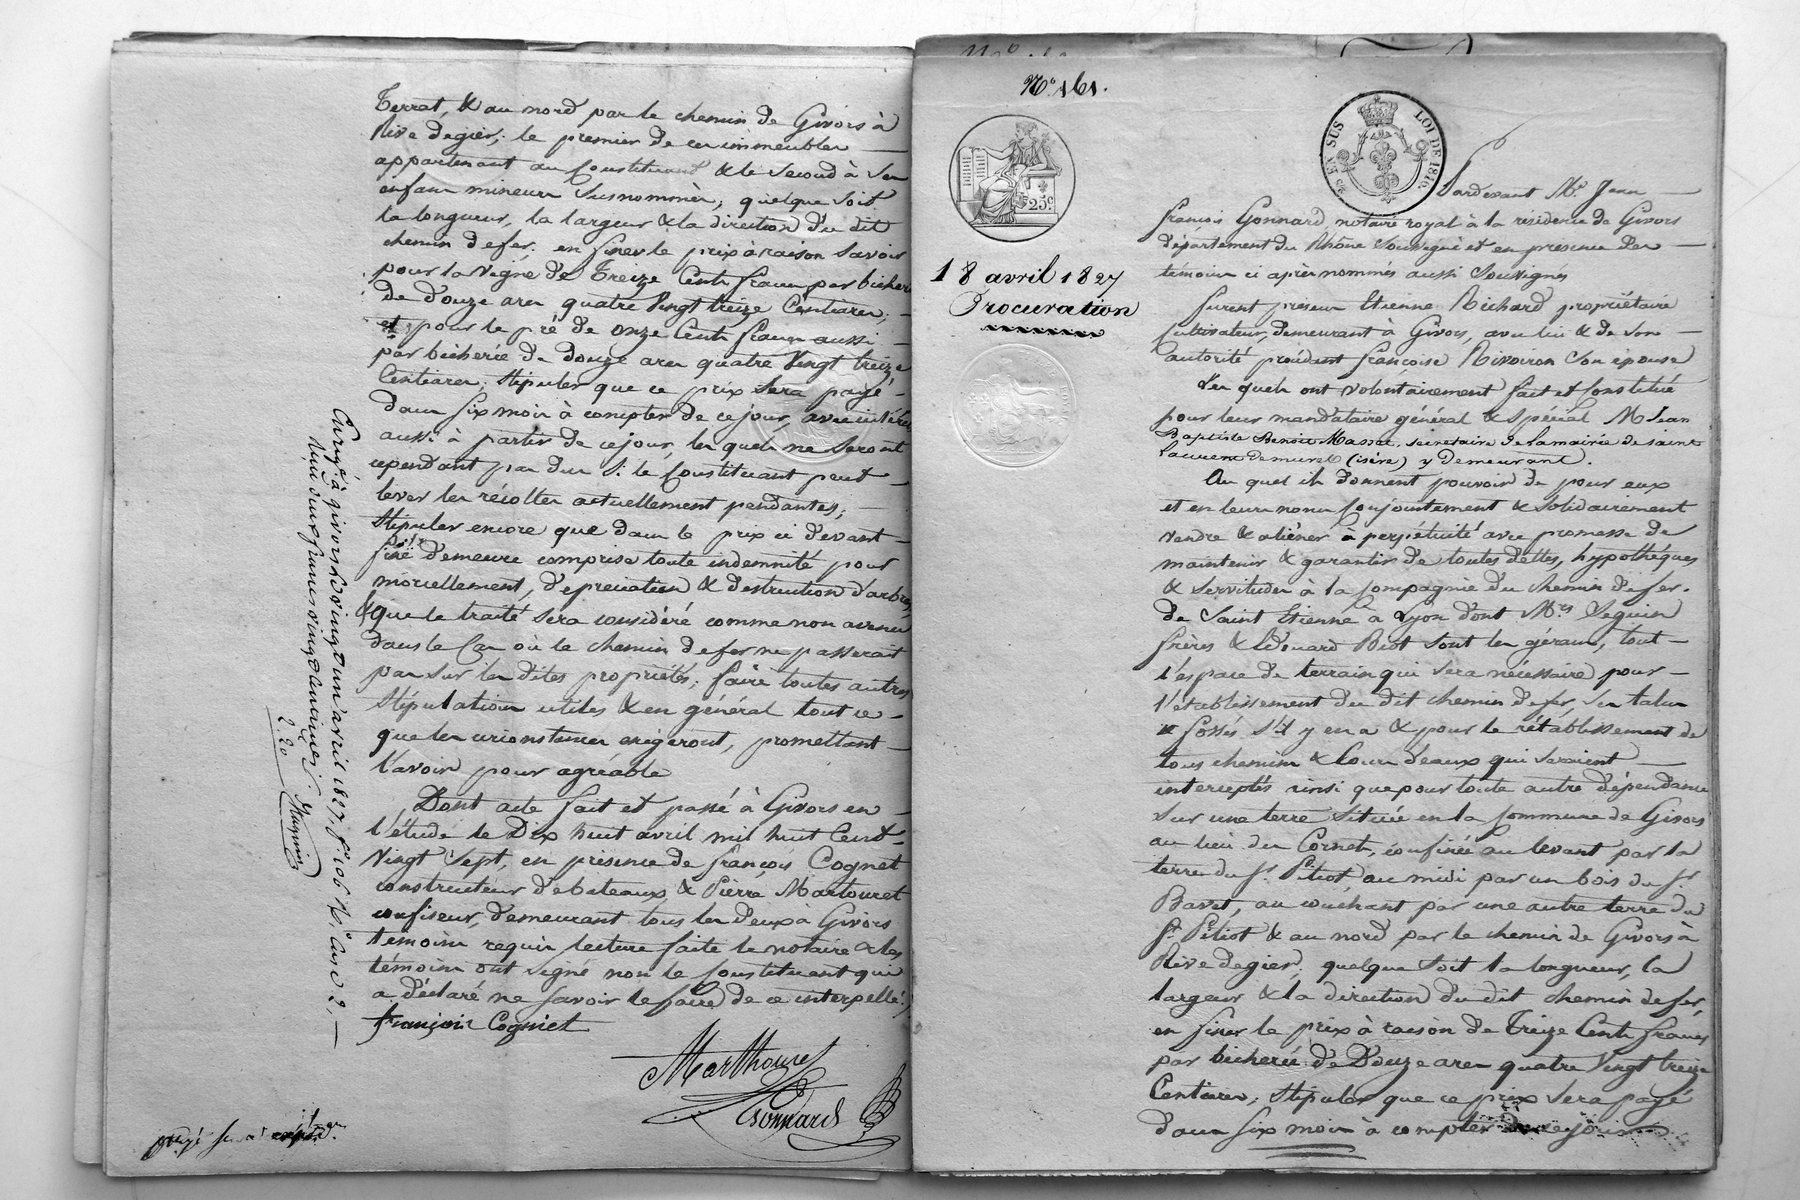 Terrat, & au nord par le chemin de Givors à
Rive degier; le premier de ces immeubles
appartenant au Constituant & le second à son
enfant mineur susnommés, quelque soit
la longueur, la largeur & la direction du dit
chemin defer. en fixer le prix à raison savoir
pour la vigne de Treize Cents francs par bicherée
de douze ares quatre Vingt treize Centiares,
et pour le pré de onze Cents francs aussi
par bicherée de douze ares quatre Vingt treize
Centiares, stipuler que ce prix sera payé
dans six mois à compter de ce jour, avec intérêts
aussi à partir de ce jour, les quels ne seront
cependant pas dus si le Constituant peut
lever les récoltes actuellement pendantes;
stipuler encore que dans le prix ci devant
fixé demeure comprise toute indemnité pour
morcellement, dépréciation & destruction d'arbres,
& que le traité sera considéré comme non avenu
dans le Cas où le chemin defer ne passerait
pas sur les dites propriétés; faire toutes autres
stipulations utiles & en général tout ce
que les circonstances exigeront, promettant
l'avoir pour agréable
Dont acte fait et passé à Givors en
l'étude le Dix huit avril mil huit Cent
Vingt Sept, en présence de françois Cognet
constructeur de bateaux & Pierre Martouret
confiseur, demeurant tous les deux à Givors
témoins requis lecture faite le notaire & les
témoins ont signé non le Constituant qui
a déclaré ne savoir le faire de ce interpellé.
françois Cogniet
Marthouret
Gonnard
Enregé à givors le vingt un avril 1827. fo 106 Vo Case 2,
reçu deux francs vingt centimes
2.20
No 161.
25c
18 avril 1827
Procuration
EN SUS
LOI DE 1816
Pardevant Me Jean
françois Gonnard, notaire royal à la résidence de Givors
département du Rhône soussigné et en présence des
témoins ci après nommés aussi soussignés
furent présens Etienne Richard propriétaire
cultivateur, demeurant à Givors, avec lui & de son
autorité procédant françoise Rivoiron son épouse
Les quels ont volontairement fait et Constitué
pour leur mandataire général & spécial M. Jean
Baptiste Benoit Massot, secrétaire de la mairie de saint
Laurent demure (isère) y demeurant.
Au quel ils donnent pouvoir de pour eux
et en leurs noms conjointement & solidairement
vendre & aliéner à perpétuité avec promesse de
maintenir & garantir de toutes dettes, hypothèques
& servitudes à la Compagnie du chemin defer.
de Saint Etienne à Lyon dont Mrs Seguin
frères & Edouard Biot sont les gérans, tout
l'espace de terrain qui sera nécessaire pour
l'établissement du dit chemin de fer, ses talus
& fossés s'il y en a & pour le rétablissement de
tous chemins & Cours d'eaux qui seraient
interceptés ainsi que pour toute autre dépendance
sur une terre située en la Commune de Givors
au lieu du Cornet, confinée au levant par la
terre du Sr. Pitiot au midi par un bois du Sr.
Bavet, au couchant par une autre terre du
Sr. Pitiot & au nord par le chemin de Givors à
Rive degier, quelque soit la longueur, la
largeur & la direction du dit chemin de fer,
en fixer le prix à raison de Treize Cents francs
par bicherée de Douze ares quatre Vingt treize
Centiares, stipuler que ce prix sera payé
dans six mois à compter de ce jour